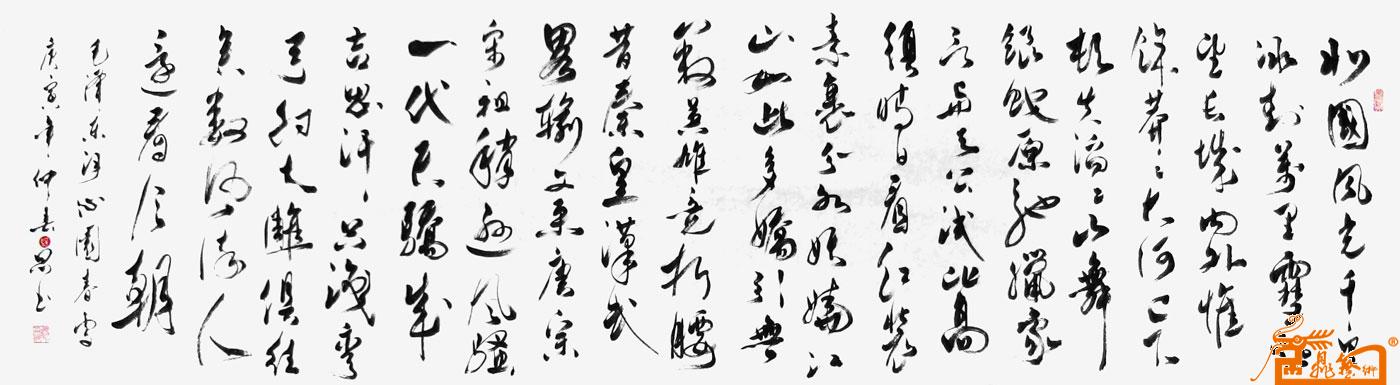 北國風光千里
冰封萬里雪
望長城內外惟
餘莽莽大河上下
頓失滔滔山舞
銀蛇原馳臘象
欲與天公試比高
須晴日看紅裝
素裹分外妖嬈江
山如此多嬌引無
數英雄競折腰
昔秦皇漢武
畧輸文采唐宗
宋祖稍遜風騷
一代天驕成
吉思汗只識彎
弓射大雕俱往
矣數風流人
還看今朝
毛澤東沁園春雪
庚寅年仲春